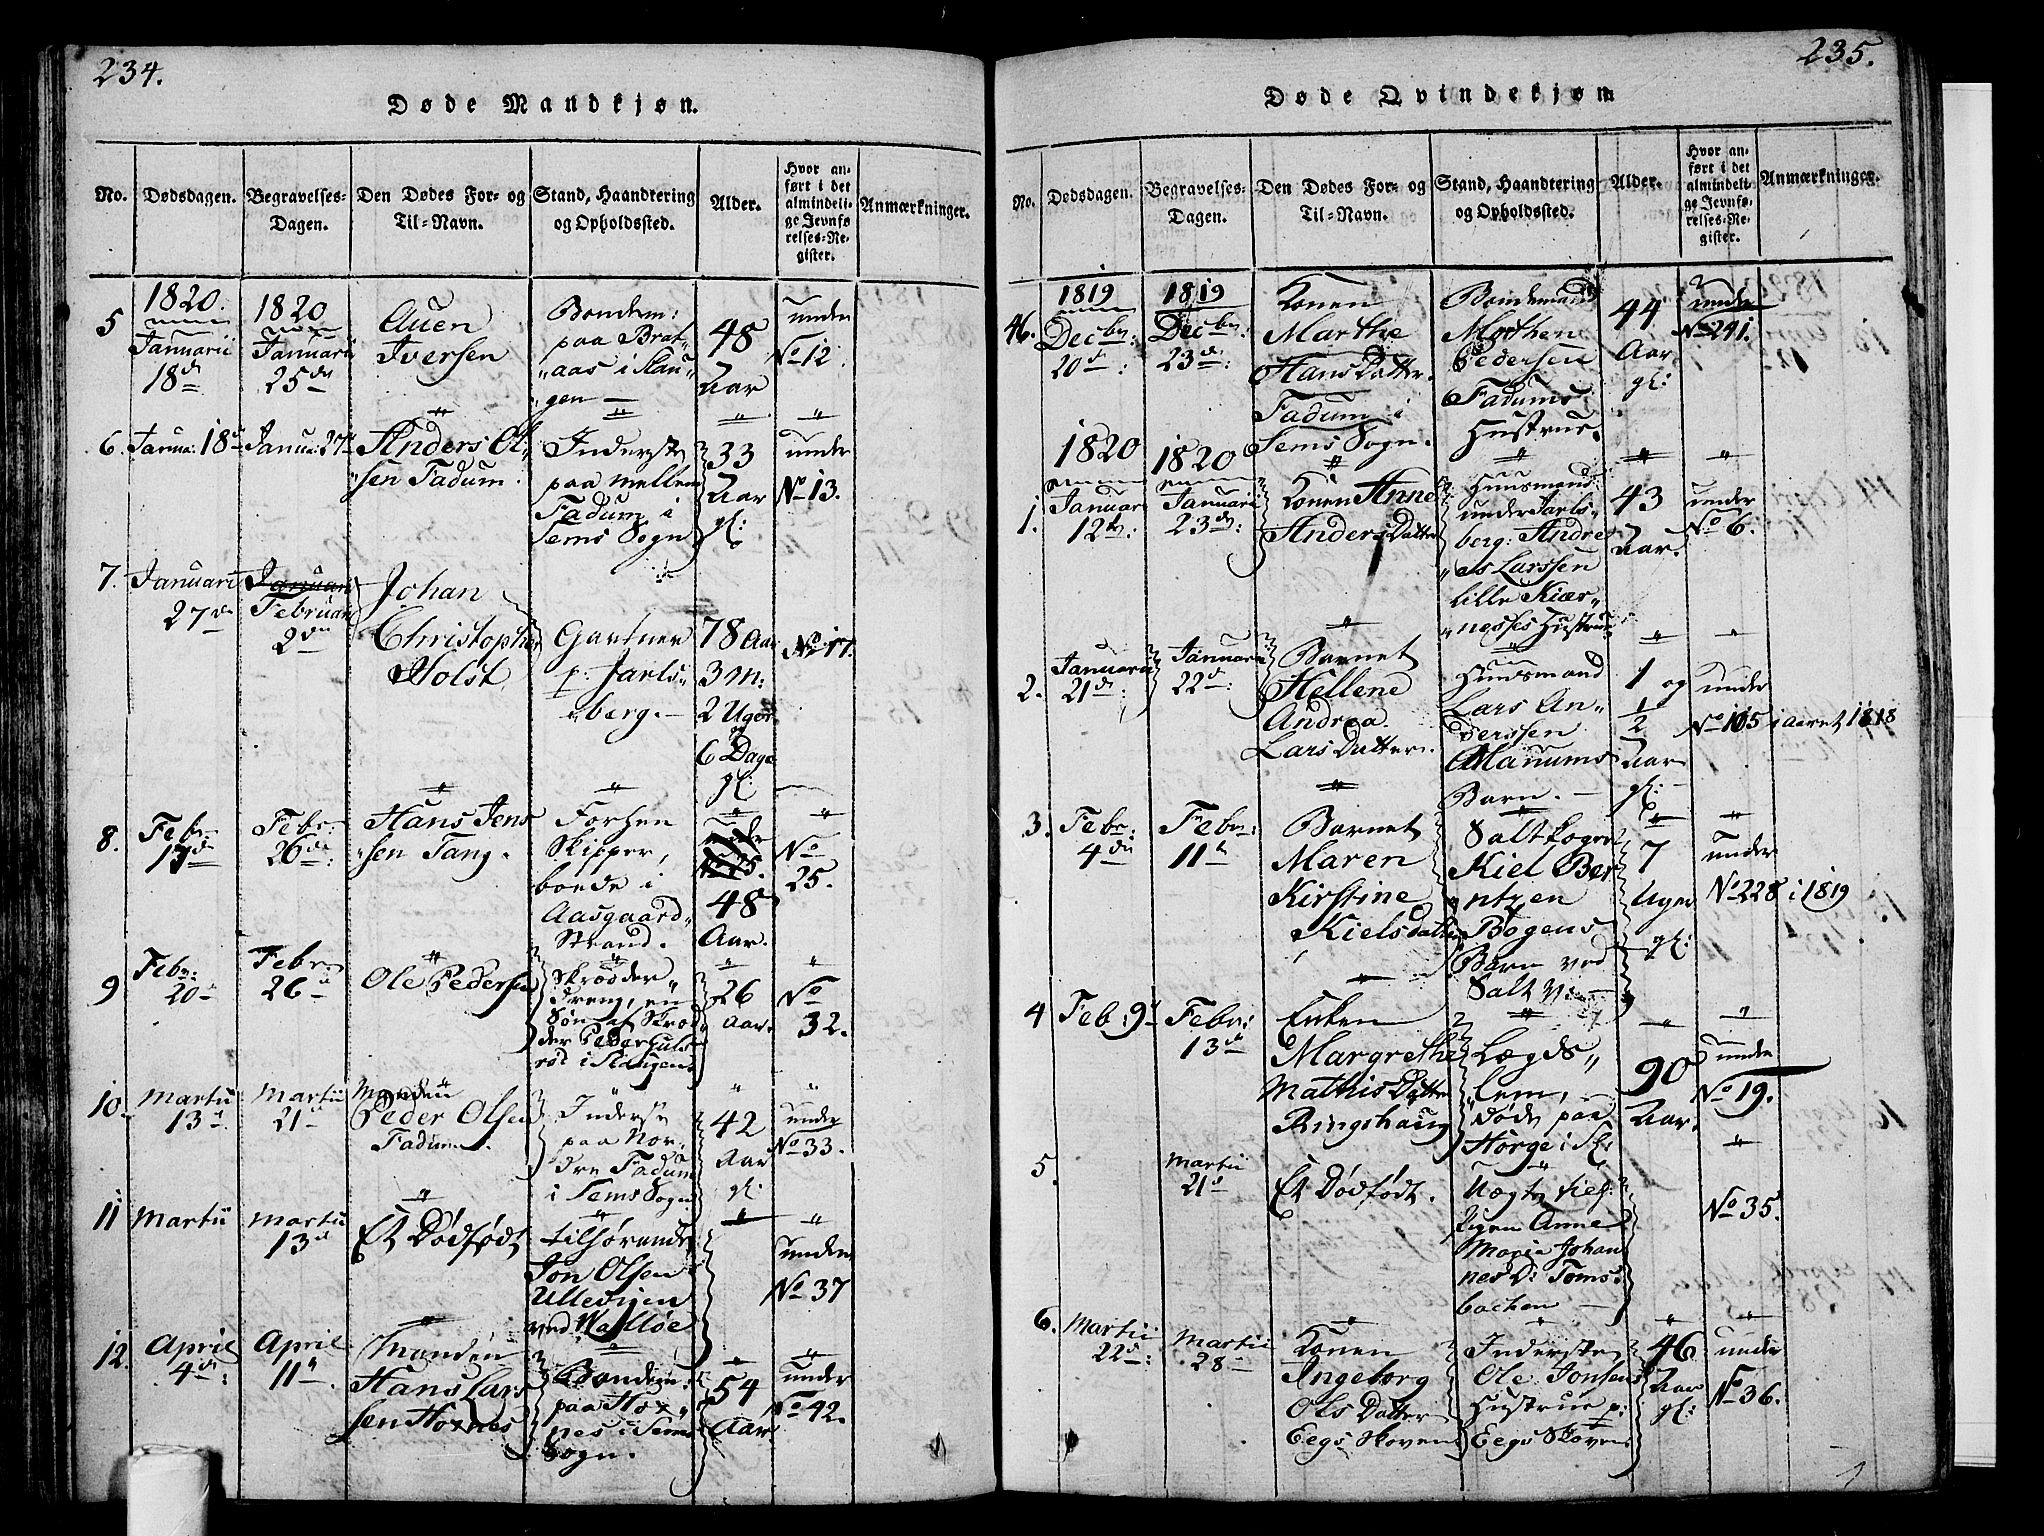 234.
Døde Mandkjøn.
No.
Dødsdagen.
Begravelses-
Dagen.
Den Dødes For- og
Til-Navn.
Stand, Haandtering
og Opholdssted.
Alder.
Hvor an-
ført i det
almindeli-
ge Jevnfø-
relses-Re-
gister.
Anmærkninger.
5
1820.
Januarii
18d
1820
Januarii
25de
Auen
Iversen
Bondem:
paa Brat-
"aas i Slau-
"gen —
48
Aar
under
No 12
6.
Janua: 18d
Janua: 27d
Anders Ol-
"sen Fadum.
Inderste
paa mellem
Fadum i
Sems Sogn
33
Aar
gl:
under
No 13.
7.
Januarii
27de
Februarii
2den
Johan
Christopher
Holst
Gartner
p: Jarls-
"berg.—
78 Aar
3 M:
2 Uger
6 Dage
gl:
No 17.
8.
Febr:
Febr:
26de:
Hans Jens
"sen Tang.
Forhen
Skipper,
boede i
Aasgaard-
Strand.
48
Aar.
No
25.
9
Febr:
20d
Febr:
26d
Ole Pedersen
Skrædder
Dreng, en
Søn af Skræd
der Peder
rød i Slaugens
26
Aar.
No
32.
10.
Martii
13d
Martii
21d
Manden
Peder Olsen
Fadum.
Inderste
paa Nor-
dre Fadum
i Sems Sogn
42
Aar
gl:
under
No 33.
11
Martii
Martii
13d
Et Dødfødt
tilhørende
Jon Olsen
Ullevigen
ved Walløe
under
No 37
12.
April
4d:
April
11te
Manden
Hans Lars
sen Hoxnes
Bondem:
paa Hox-
nes i Sems
Sogn.
54
Aar
under
No 42.
235.
Døde Qvindekjøn
No.
Dødsdagen.
Begravelses-
Dagen.
Den Dødes For- og
Til-Navn.
Stand, Haandtering
og Opholdssted.
Alder.
Hvor an-
ført i det
almindeli-
ge Jevnfø-
relses-Re-
gister.
Anmærkninger.
46.
1819
Decbr:
20d:
1819
Decbr:
23d:
Konen
Marthe
Hans Datter.
Fadum i
Sems Sogn.
Bondemand
Morthen
Pedersen
Fadums
Hustrue.
44
Aar
gl:
under
No 241.
1.
1820
Januari
12te:
1820
Januarii
23de:
Konen Anne
Anders Datter
Huusmand
under Jarls-
berg: Andre
"as Larssen
Lille Kiær-
"nesses Hustrue
43
Aar.
under
No 6.
2.
Januarii
21d:
Januarii
22d:
Barnet
Hellene
Andrea
Lars Datter.
Huusmand
Lars An-
derssen
Manums
Barn. —
1 og
1/2
Aar
gl:
under
No 105 i aaret 1818
3.
Febr:
4de
Febr:
11te
Barnet
Maren
Kirstine
Kiels Datter
Saltkoger
Kiel Ber
ntzen
Bogens
Barn ved
Salt V: —
7
Uger
gl:
under
No 228 i 1819
4
Feb: 9d
Febr:
13de
Enken
Margrethe
Mathis Datter
Ringshaug
Lægds-
"lem,
døde paa
Horge i Sl:
90
Aar.
under
No 19.
5.
Martii
21d
Et Dødfødt.
Uægte
Pigen Anne
Marie Johan
nes D: Toms-
bachen —
No 35.
6.
Martii
22d:
Martii
28
Konen
Ingeborg
Ols Datter
Eegs Skoven
Inderste
Ole Jonsens
Hustrue p:
Eegs Skoven
46
Aar
gl:
under
No 36.